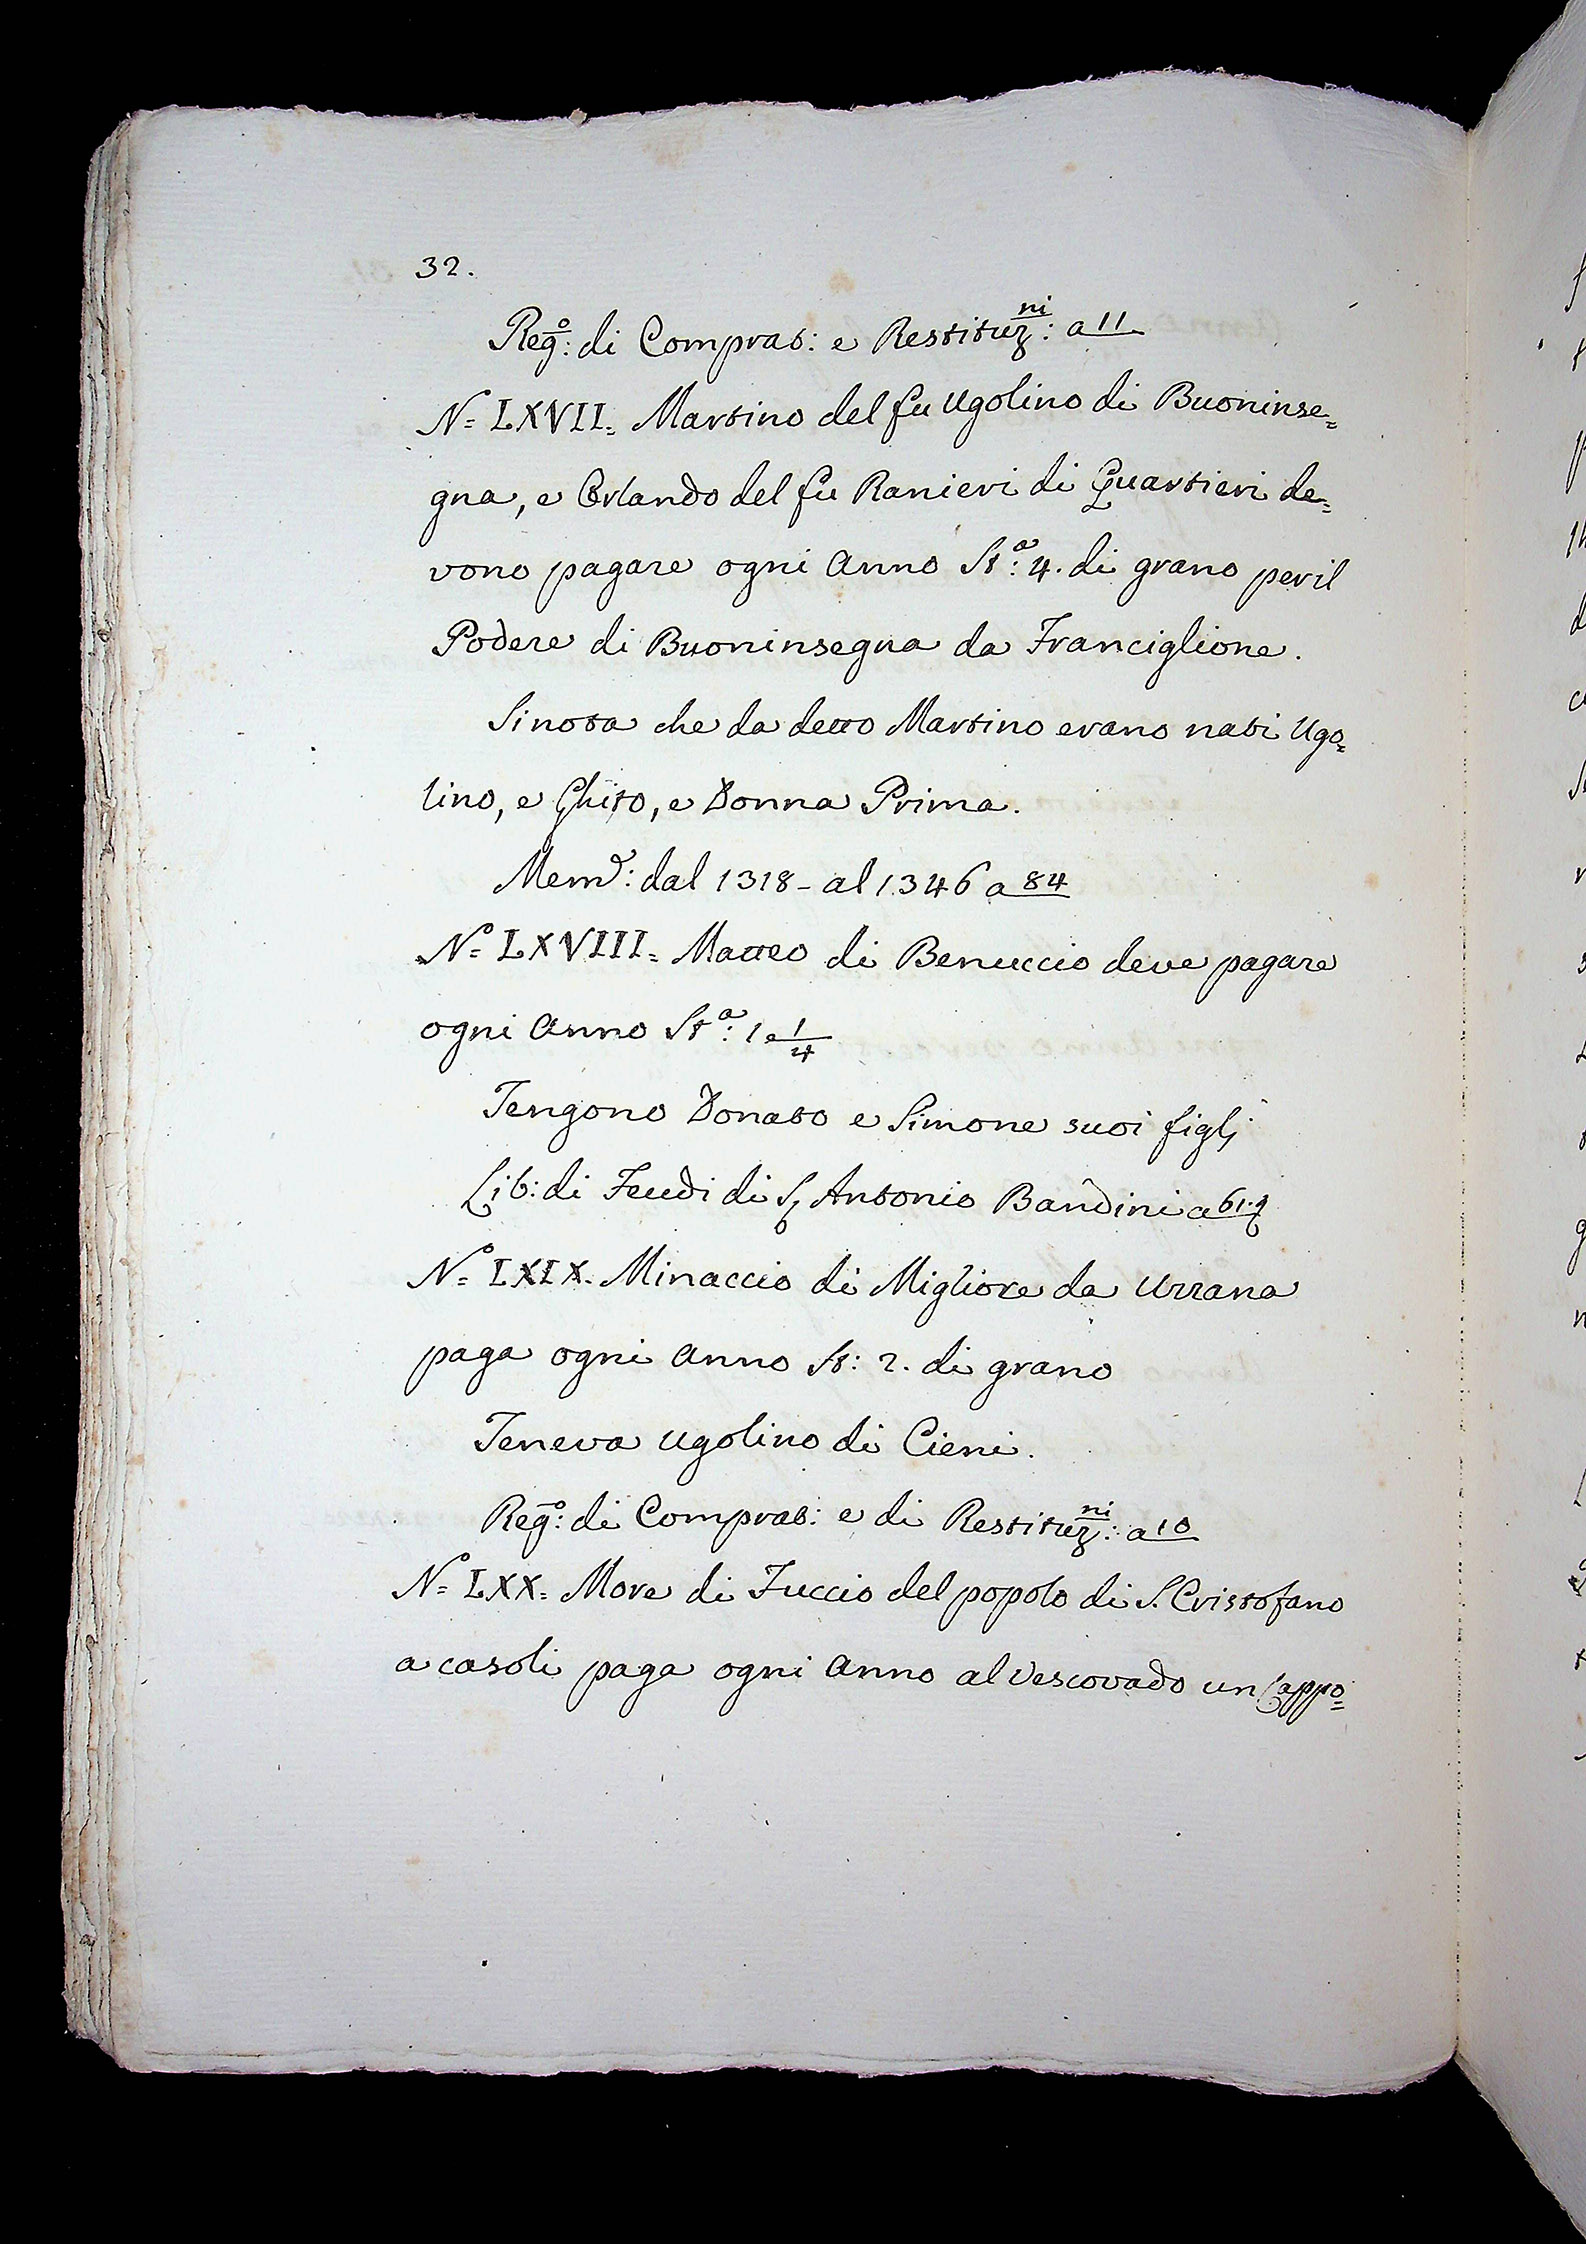 32.
Reg.º: di Comprat: e Restituz.ni: a 11
Nº= LXVII= Martino del fu Ugolino di Buoninse=
gna, e Orlando del fu Ranieri di Quartieri de=
vono pagare ogni Anno St.ª: 4. di grano per il
Podere di Buoninsegna da Franciglione.
Si nota che da detto Martino erano nati Ugo=
lino, e Ghito, e Donna Prima.
Mem.: dal 1318 - al 1346 a 84
Nº= LXVIII= Matteo di Benuccio deve pagare
ogni Anno St.ª: 1 e 1/4
Tengono Donato e Simone suoi figlj
Lib: di Feudi di S. Antonio Bandini a 61.
Nº= LXIX. Minaccio di Migliore da Urrana
paga ogni Anno St: 2. di grano
Teneva Ugolino di Cieni.
Reg.º: di Comprat: e di Restituz.ni: a 10
Nº= LXX= More di Fuccio del popolo di S. Cristofano
a casoli paga ogni Anno al Vescovado un Cappo=